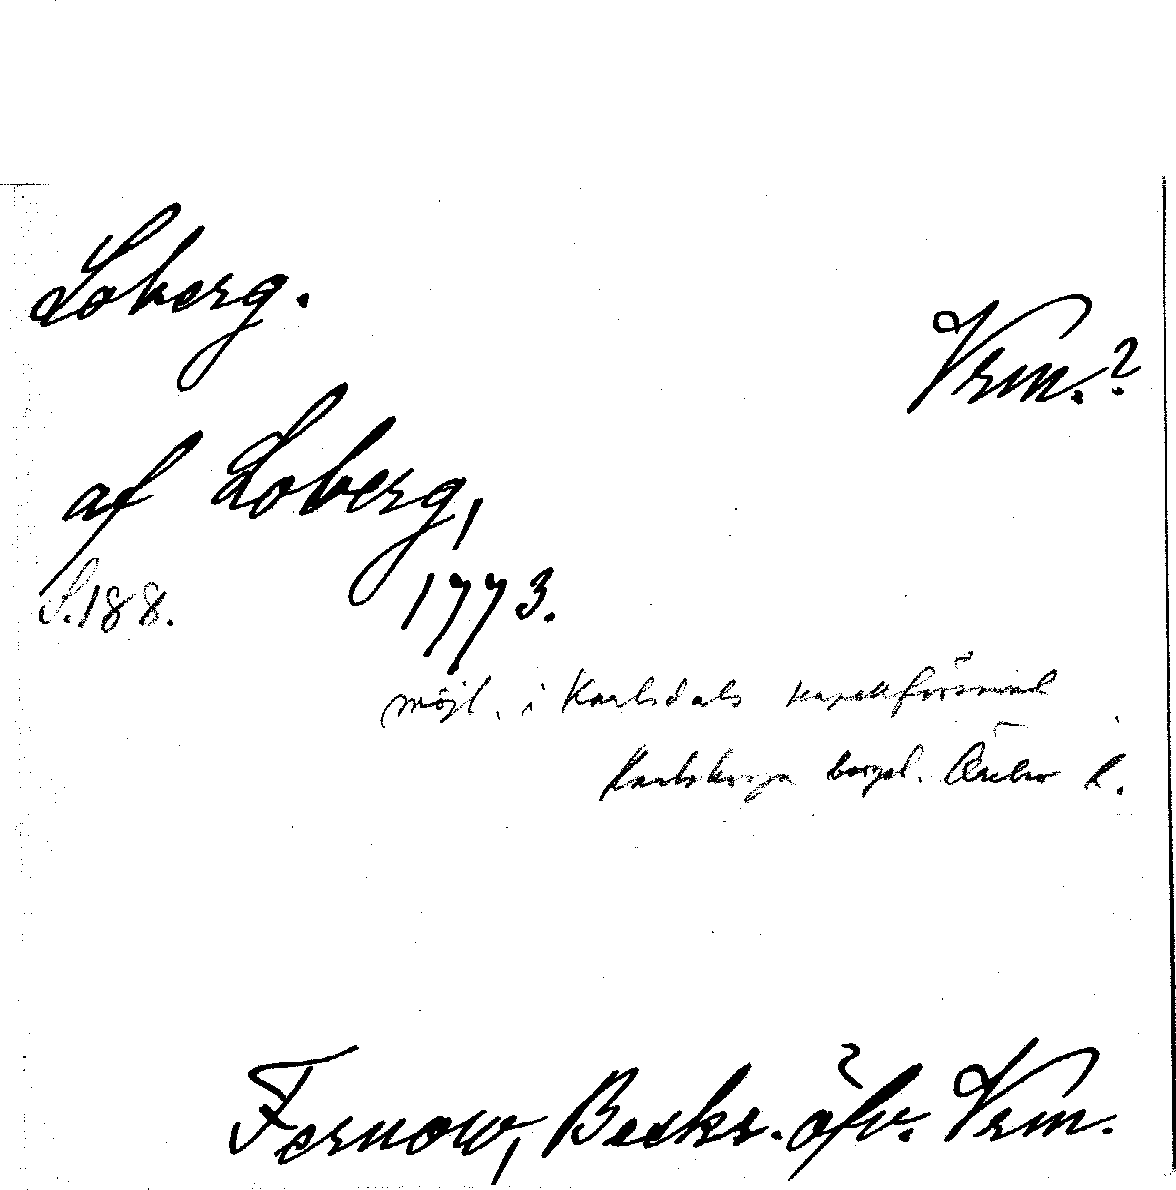 Loberg.
Vrm.?
af Loberg,
S. 188.
1773.
möjl. i Karlsdals kapellförsaml
Karlskoga bergsl. Örebro l.
Fernow, Beskr. öfv. Vrm.